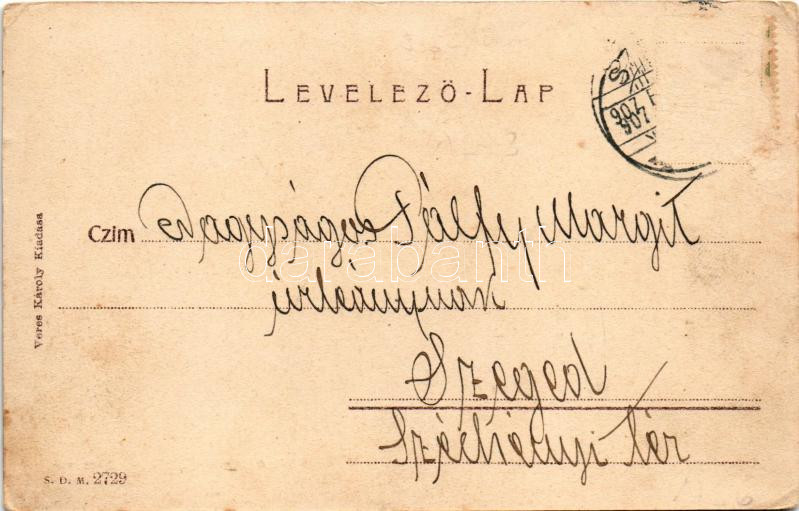 LEVELEZŐ-LAP
Czim Nagyságos Pálfy Margit
úrleánynak
Szeged
Széchenyi tér
Veres Károly Kiadása
S. D. M. 2729
darabanth
906